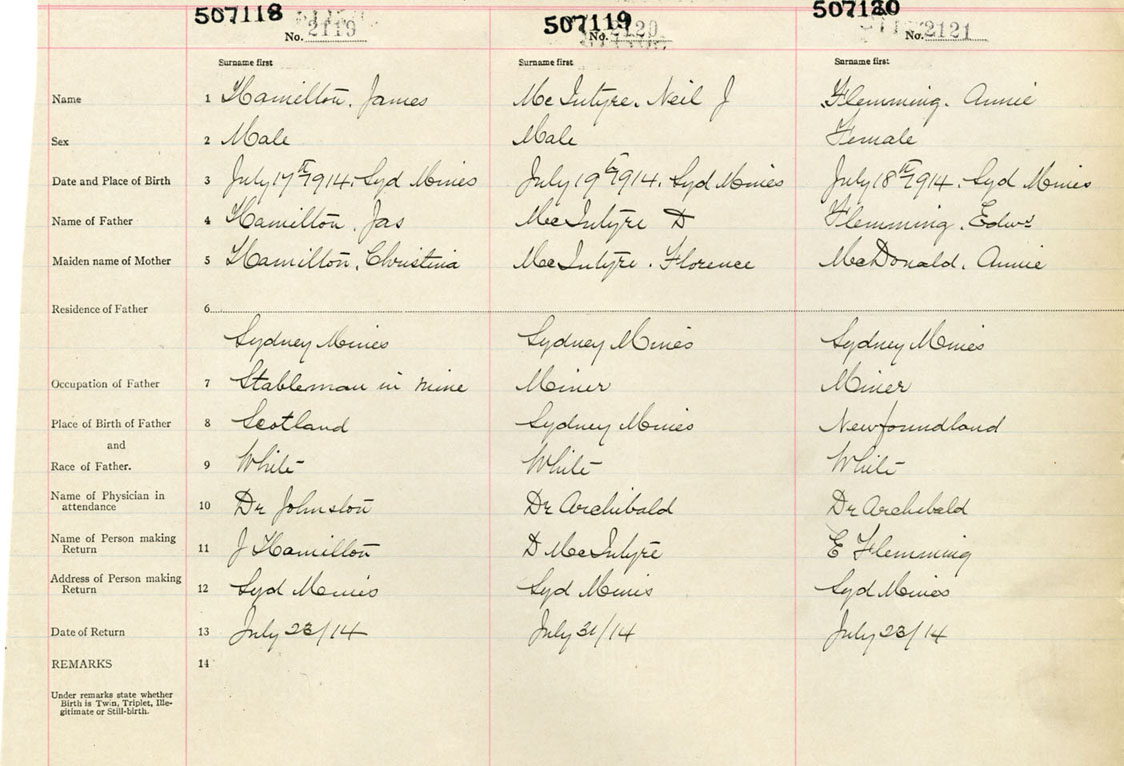 507118 507119 507120
No. 2119 No. 2120 No. 2121
Surname first Surname first Surname first
Name 1 Hamilton, James McIntyre, Neil J Flemming, Annie
Sex 2 Male Male Female
Date and Place of Birth 3 July 17th 1914, Syd Mines July 19th 1914, Syd Mines July 18th 1914, Syd Mines
Name of Father 4 Hamilton, Jas McIntyre D Flemming, Edwd
Maiden name of Mother 5 Hamilton, Christina McIntyre, Florence McDonald, Annie
Residence of Father 6
Sydney Mines Sydney Mines Sydney Mines
Occupation of Father 7 Stableman in mine Miner Miner
Place of Birth of Father 8 Scotland Sydney Mines Newfoundland
and
Race of Father. 9 White White White
Name of Physician in
attendance 10 Dr Johnston Dr Archibald Dr Archibald
Name of Person making
Return 11 J Hamilton D McIntyre E Flemming
Address of Person making
Return 12 Syd Mines Syd Mines Syd Mines
Date of Return 13 July 23/14 July 31/14 July 23/14
REMARKS 14
Under remarks state whether
Birth is Twin, Triplet, Ille-
gitimate or Still-birth.